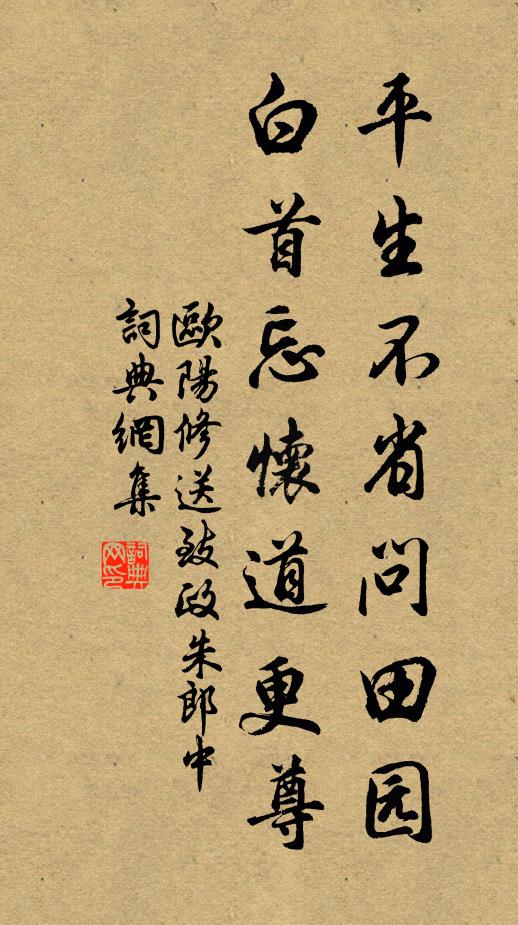 平生不省问田园
白首忘懷道更尊
歐陽修送致政朱郎中
詞典網集
詞典网印